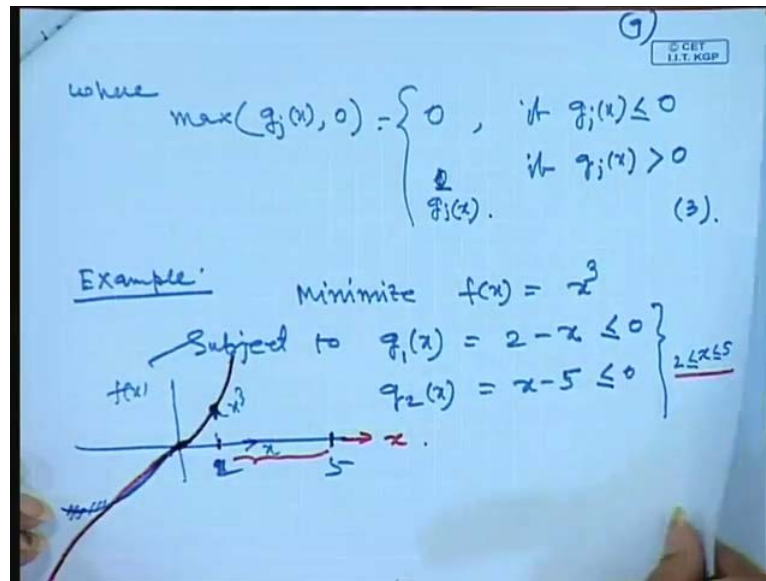 9
© CET
I.I.T. KGP
where
max(gj(x), 0) = { 0 , if gj(x) ≤ 0
if gj(x) > 0
gj(x). (3).
Example: Minimize f(x) = x³
Subject to g₁(x) = 2 - x ≤ 0 } 2 ≤ x ≤ 5
g₂(x) = x - 5 ≤ 0
f(x)
x³
x
2 5 x.